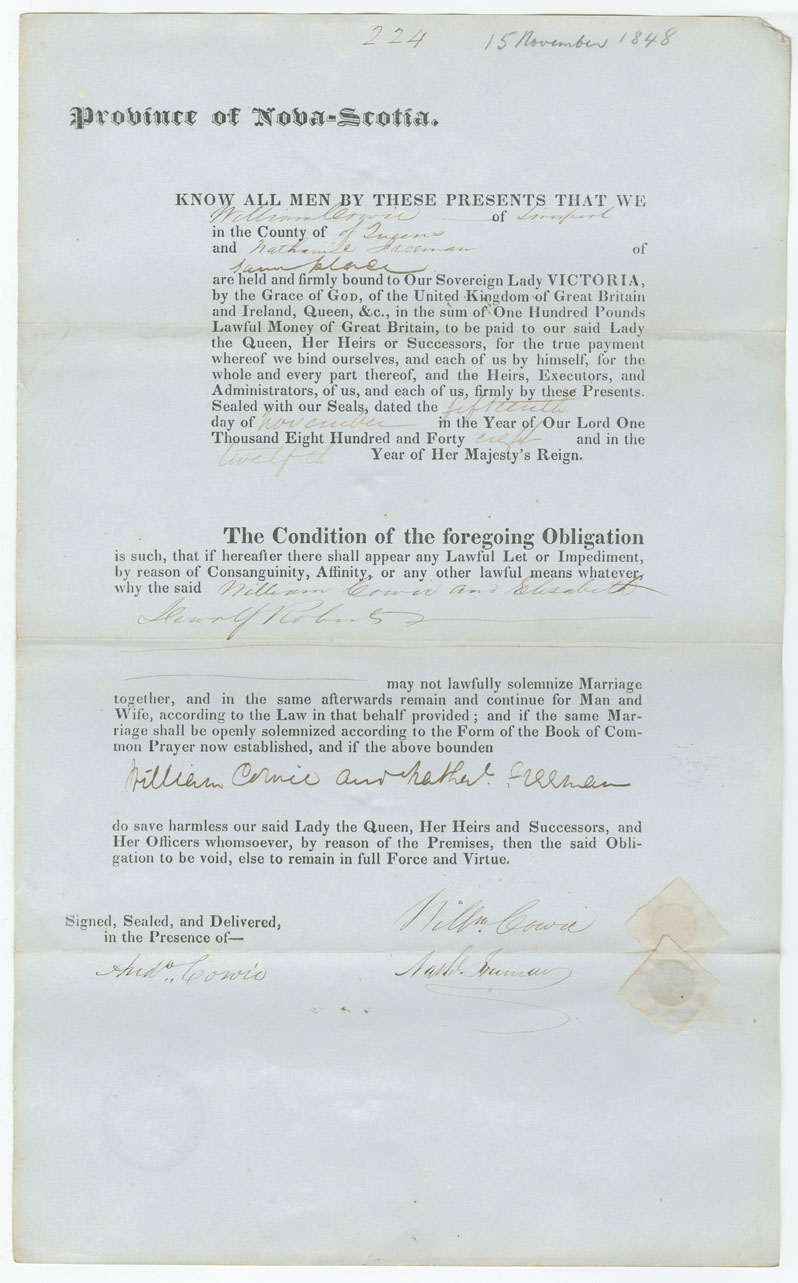 224 15 November 1848
Province of Nova-Scotia.
KNOW ALL MEN BY THESE PRESENTS THAT WE
William Cowie of Liverpool
in the County of of Queens
and Nathaniel Freeman of
same place
are held and firmly bound to Our Sovereign Lady VICTORIA,
by the Grace of GOD, of the United Kingdom of Great Britain
and Ireland, Queen, &c., in the sum of One Hundred Pounds
Lawful Money of Great Britain, to be paid to our said Lady
the Queen, Her Heirs or Successors, for the true payment
whereof we bind ourselves, and each of us by himself, for the
whole and every part thereof, and the Heirs, Executors, and
Administrators, of us, and each of us, firmly by these Presents.
Sealed with our Seals, dated the fifteenth
day of November in the Year of Our Lord One
Thousand Eight Hundred and Forty eight and in the
twelfth Year of Her Majesty's Reign.
The Condition of the foregoing Obligation
is such, that if hereafter there shall appear any Lawful Let or Impediment,
by reason of Consanguinity, Affinity, or any other lawful means whatever,
why the said William Cowie and Elisabeth
Dewolf Roberts
may not lawfully solemnize Marriage
together, and in the same afterwards remain and continue for Man and
Wife, according to the Law in that behalf provided; and if the same Mar-
riage shall be openly solemnized according to the Form of the Book of Com-
mon Prayer now established, and if the above bounden
William Cowie and Nathel. Freeman
do save harmless our said Lady the Queen, Her Heirs and Successors, and
Her Officers whomsoever, by reason of the Premises, then the said Obli-
gation to be void, else to remain in full Force and Virtue.
Signed, Sealed, and Delivered,
in the Presence of—
Willm. Cowie
Andw. Cowie
Nathl. Freeman